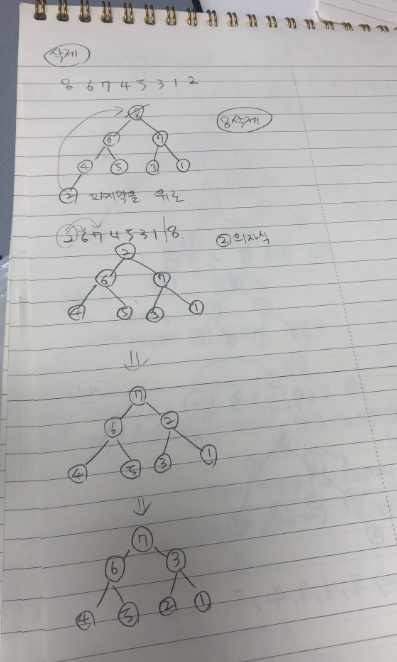 삭제
8 6 7 4 5 3 1 2
8
8삭제
6 7
4 5 3 1
2 마지막을 위로
2 6 7 4 5 3 1 | 8
2의 자식
2
6 7
4 5 3 1
7
6 2
4 5 3 1
7
6 3
4 5 2 1